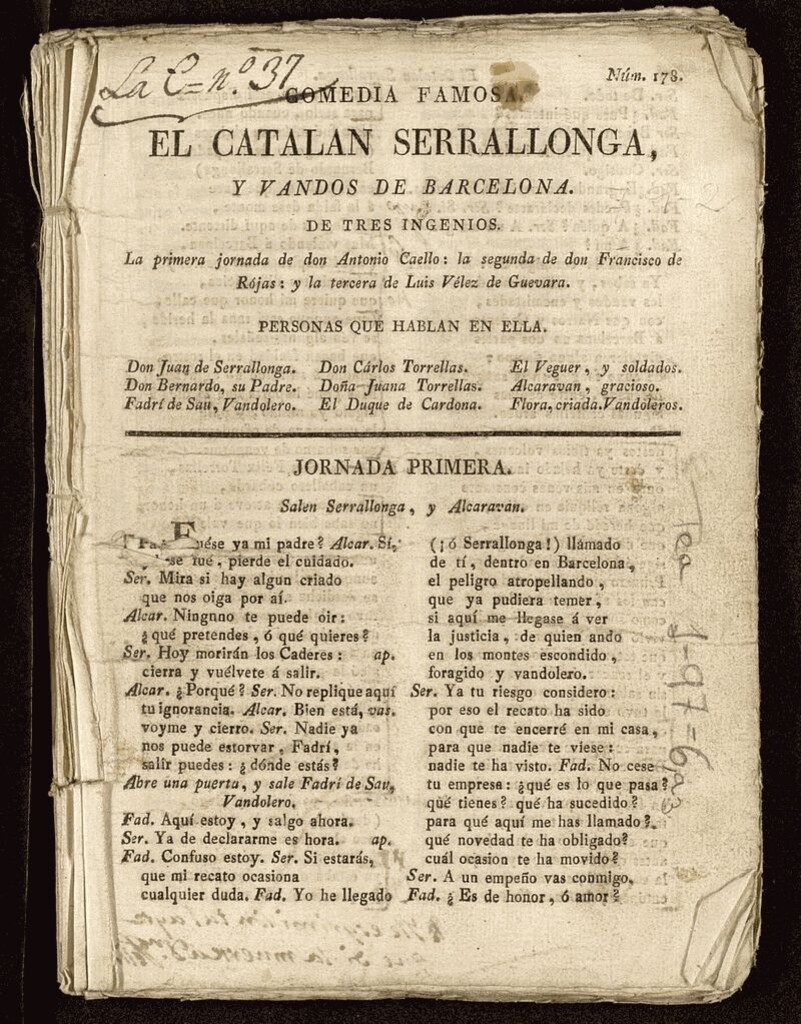 La C= n.º 37
Núm. 178.
COMEDIA FAMOSA.
EL CATALAN SERRALLONGA,
Y VANDOS DE BARCELONA.
DE TRES INGENIOS.
La primera jornada de don Antonio Caello: la segunda de don Francisco de
Rójas: y la tercera de Luis Vélez de Guevara.
PERSONAS QUE HABLAN EN ELLA.
Don Juan de Serrallonga. Don Cárlos Torrellas. El Veguer, y soldados.
Don Bernardo, su Padre. Doña Juana Torrellas. Alcaravan, gracioso.
Fadrí de Sau, Vandolero. El Duque de Cardona. Flora, criada. Vandoleros.
JORNADA PRIMERA.
Salen Serrallonga, y Alcaravan.
Fuése ya mi padre? Alcar. Sí,
se fué, pierde el cuidado.
Ser. Mira si hay algun criado
que nos oiga por aí.
Alcar. Ningnno te puede oir:
¿qué pretendes, ó qué quieres?
Ser. Hoy morirán los Caderes: ap.
cierra y vuélvete á salir.
Alcar. ¿Porqué? Ser. No replique aquí
tu ignorancia. Alcar. Bien está, vas.
voyme y cierro. Ser. Nadie ya
nos puede estorvar, Fadrí,
salir puedes: ¿dónde estás?
Abre una puerta, y sale Fadrí de Sau,
Vandolero.
Fad. Aquí estoy, y salgo ahora.
Ser. Ya de declararme es hora. ap.
Fad. Confuso estoy. Ser. Si estarás,
que mi recato ocasiona
cualquier duda. Fad. Yo he llegado
(¡ó Serrallonga!) llamado
de tí, dentro en Barcelona,
el peligro atropellando,
que ya pudiera temer,
si aquí me llegase á ver
la justicia, de quien ando
en los montes escondido,
foragido y vandolero.
Ser. Ya tu riesgo considero:
por eso el recato ha sido
con que te encerré en mi casa,
para que nadie te viese:
nadie te ha visto. Fad. No cese
tu empresa: ¿qué es lo que pasa?
qué tienes? qué ha sucedido?
para qué aquí me has llamado?
qué novedad te ha obligado?
cuál ocasion te ha movido?
Ser. A un empeño vas conmigo.
Fad. ¿Es de honor, ó amor?
Tea 1-97-6